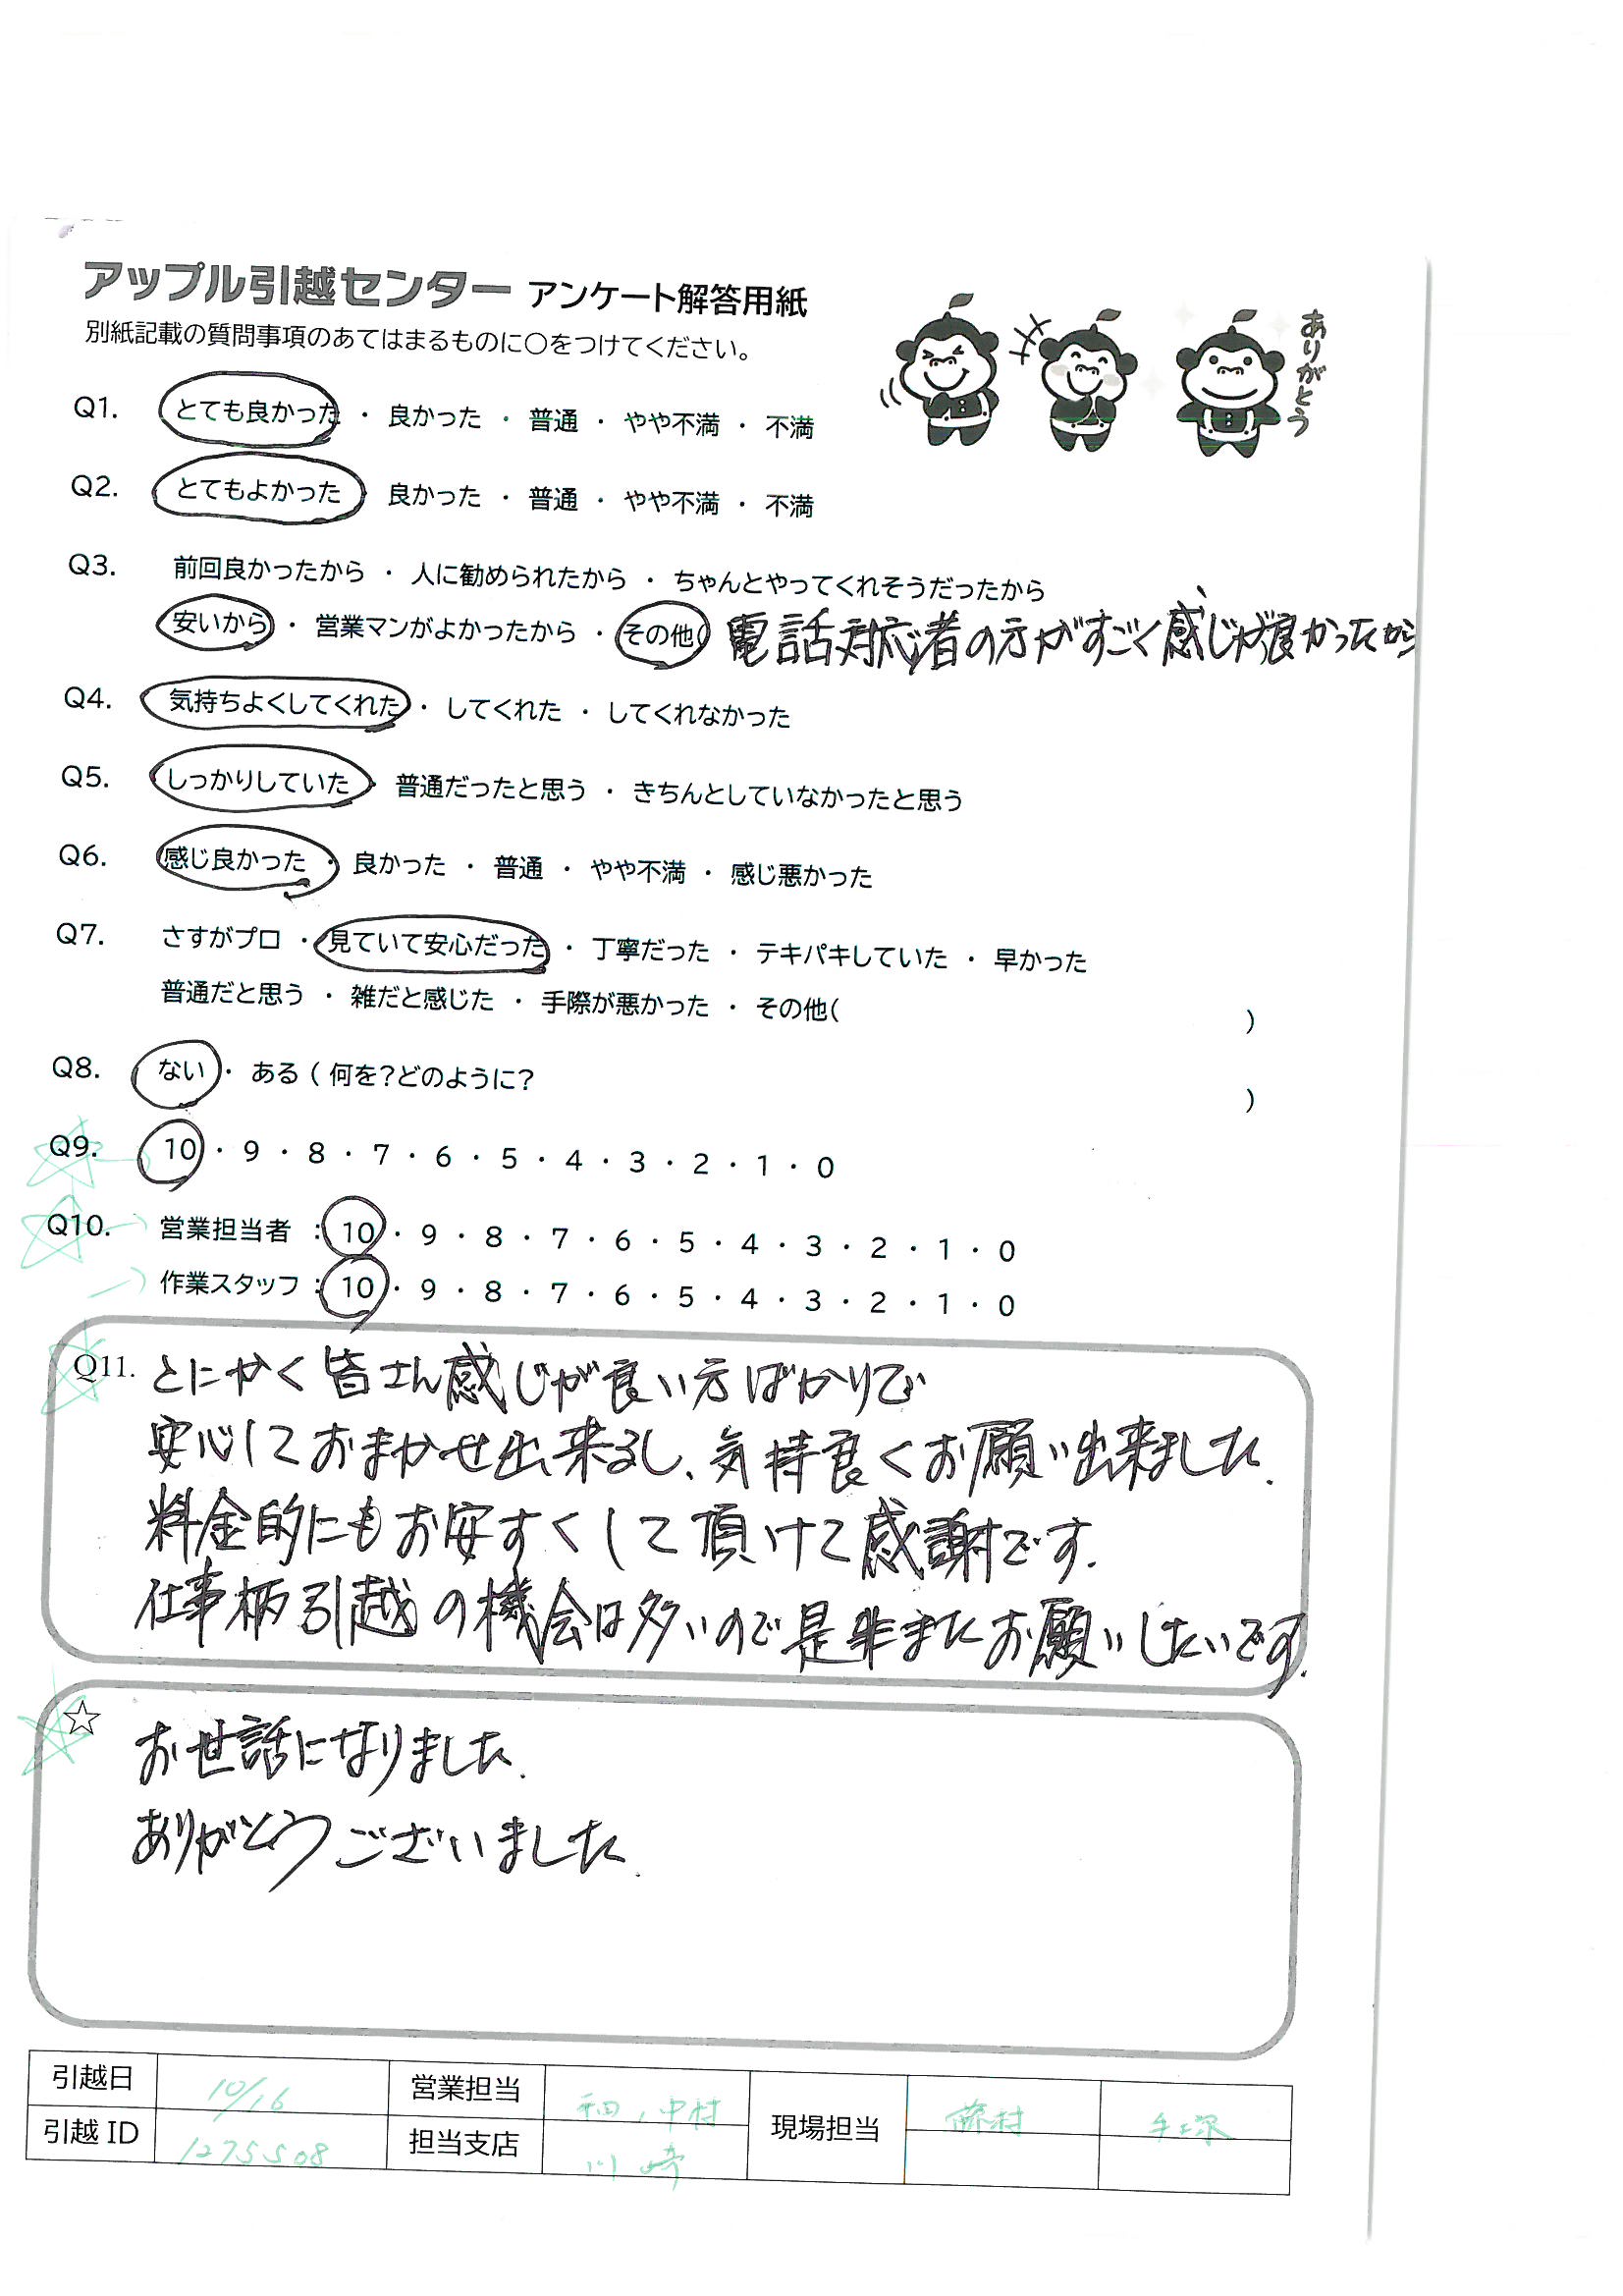 アップル引越センター アンケート解答用紙
別紙記載の質問事項のあてはまるものに○をつけてください。
ありがとう
Q1. とても良かった ・ 良かった ・ 普通 ・ やや不満 ・ 不満
Q2. とてもよかった 良かった ・ 普通 ・ やや不満 ・ 不満
Q3. 前回良かったから ・ 人に勧められたから ・ ちゃんとやってくれそうだったから
安いから ・ 営業マンがよかったから ・ その他( 電話対応者の方がすごく感じが良かったから
Q4. 気持ちよくしてくれた ・ してくれた ・ してくれなかった
Q5. しっかりしていた ・ 普通だったと思う ・ きちんとしていなかったと思う
Q6. 感じ良かった ・ 良かった ・ 普通 ・ やや不満 ・ 感じ悪かった
Q7. さすがプロ ・ 見ていて安心だった ・ 丁寧だった ・ テキパキしていた ・ 早かった
普通だと思う ・ 雑だと感じた ・ 手際が悪かった ・ その他( )
Q8. ない ・ ある ( 何を?どのように? )
Q9. 10 ・ 9 ・ 8 ・ 7 ・ 6 ・ 5 ・ 4 ・ 3 ・ 2 ・ 1 ・ 0
Q10. 営業担当者 : 10 ・ 9 ・ 8 ・ 7 ・ 6 ・ 5 ・ 4 ・ 3 ・ 2 ・ 1 ・ 0
作業スタッフ : 10 ・ 9 ・ 8 ・ 7 ・ 6 ・ 5 ・ 4 ・ 3 ・ 2 ・ 1 ・ 0
Q11. とにかく皆さん感じが良い方ばかりで
安心しておまかせ出来るし、気持良くお願い出来ました.
料金的にもお安すくして頂けて感謝です.
仕事柄引越の機会は多いので是非またお願いしたいです.
☆ お世話になりました.
ありがとうございました.
引越日 10/16 営業担当 中村 現場担当 藤村 手塚
引越 ID 1275508 担当支店 川崎